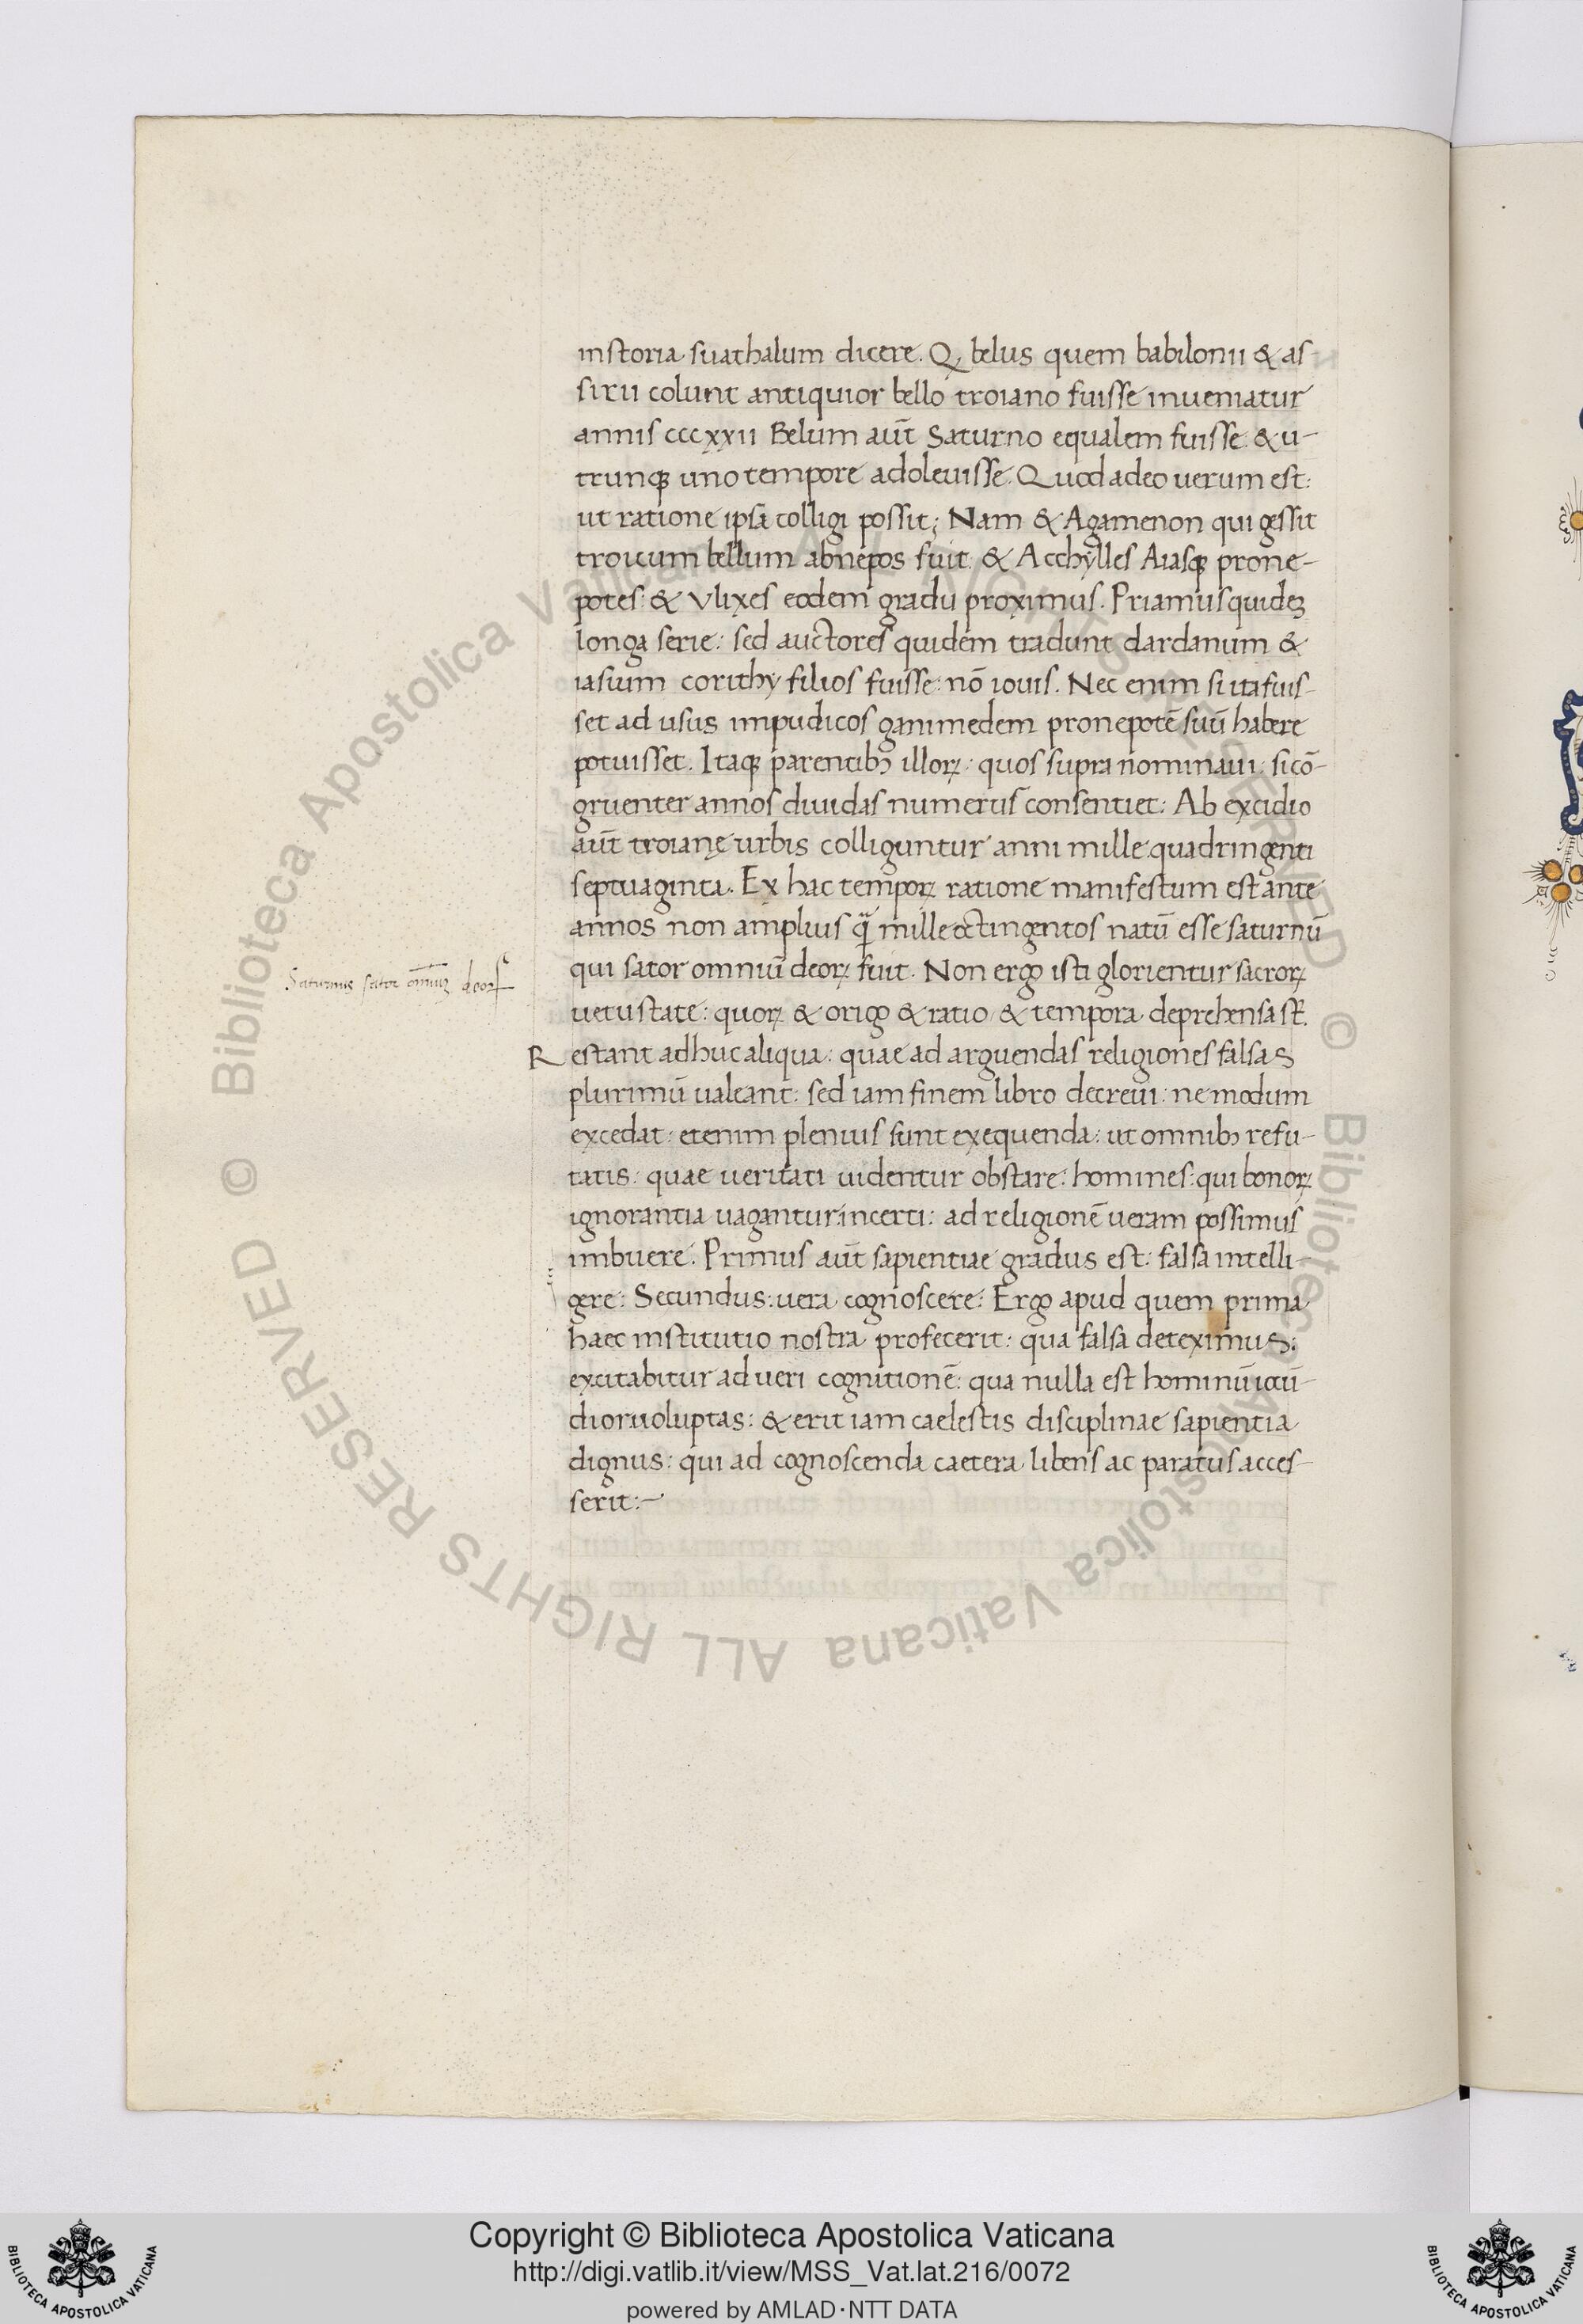 instoria suathalum dicere. Q, belus quem babilonii & as
sirii colunt antiquior bello troiano fuisse inueniatur
annis cccxxii Belum aut̄ Saturno equalem fuisse. & u-
trunqꝫ uno tempore adoleuisse. Quod adeo uerum est:
ut ratione ipsa colligi possit; Nam & Agamenon qui gessit
troicum bellum abnepos fuit. & Acchylles Aiasqꝫ prone-
potes: & Vlixes eodem gradu proximus. Priamus quideꝫ
longa serie: sed auctores quidem tradunt dardanum &
iasium corithy filios fuisse: nō iouis. Nec enim si ita fuis-
set ad usus impudicos ganimedem pronepotē suū habere
potuisset. Itaqꝫ parentibꝫ illoꝝ: quos supra nominaui: si cō-
gruenter annos diuidas numerus consentiet: Ab excidio
aut̄ troianę urbis colliguntur anni mille quadringenti
septuaginta. Ex hac tempoꝝ ratione manifestum est ante
annos non amplius q̄ mille octingentos natū esse saturnū
Saturnus sator om̄iuꝫ deoꝝ
qui sator omniū deoꝝ fuit. Non ergo isti glorientur sacroꝝ
uetustate: quoꝝ & origo & ratio & tempora deprehensa st̄.
Restant adhuc aliqua: quae ad arguendas religiones falsas
plurimū ualeant: sed iam finem libro decreui: ne modum
excedat: etenim plenius sunt exequenda: ut omnibꝫ refu-
tatis: quae ueritati uidentur obstare: homines: qui bonoꝝ
ignorantia uagantur: incerti: ad religionē ueram possimus
imbuere. Primus aut̄ sapientiae gradus est: falsa intelli-
gere: Secundus: uera cognoscere: Ergo apud quem prima
haec institutio nostra profecerit: qua falsa deteximus:
excitabitur ad ueri cognitionē: qua nulla est hominū iocū-
dior uoluptas: & erit iam caelestis disciplinae sapientia
dignus: qui ad cognoscenda caetera libens ac paratus acces-
serit:-
© Biblioteca Apostolica Vaticana ALL RIGHTS RESERVED © Biblioteca Apostolica Vaticana ALL RIGHTS RESERVED
Copyright © Biblioteca Apostolica Vaticana
http://digi.vatlib.it/view/MSS_Vat.lat.216/0072
powered by AMLAD·NTT DATA
BIBLIOTECA APOSTOLICA VATICANA
BIBLIOTECA APOSTOLICA VATICANA